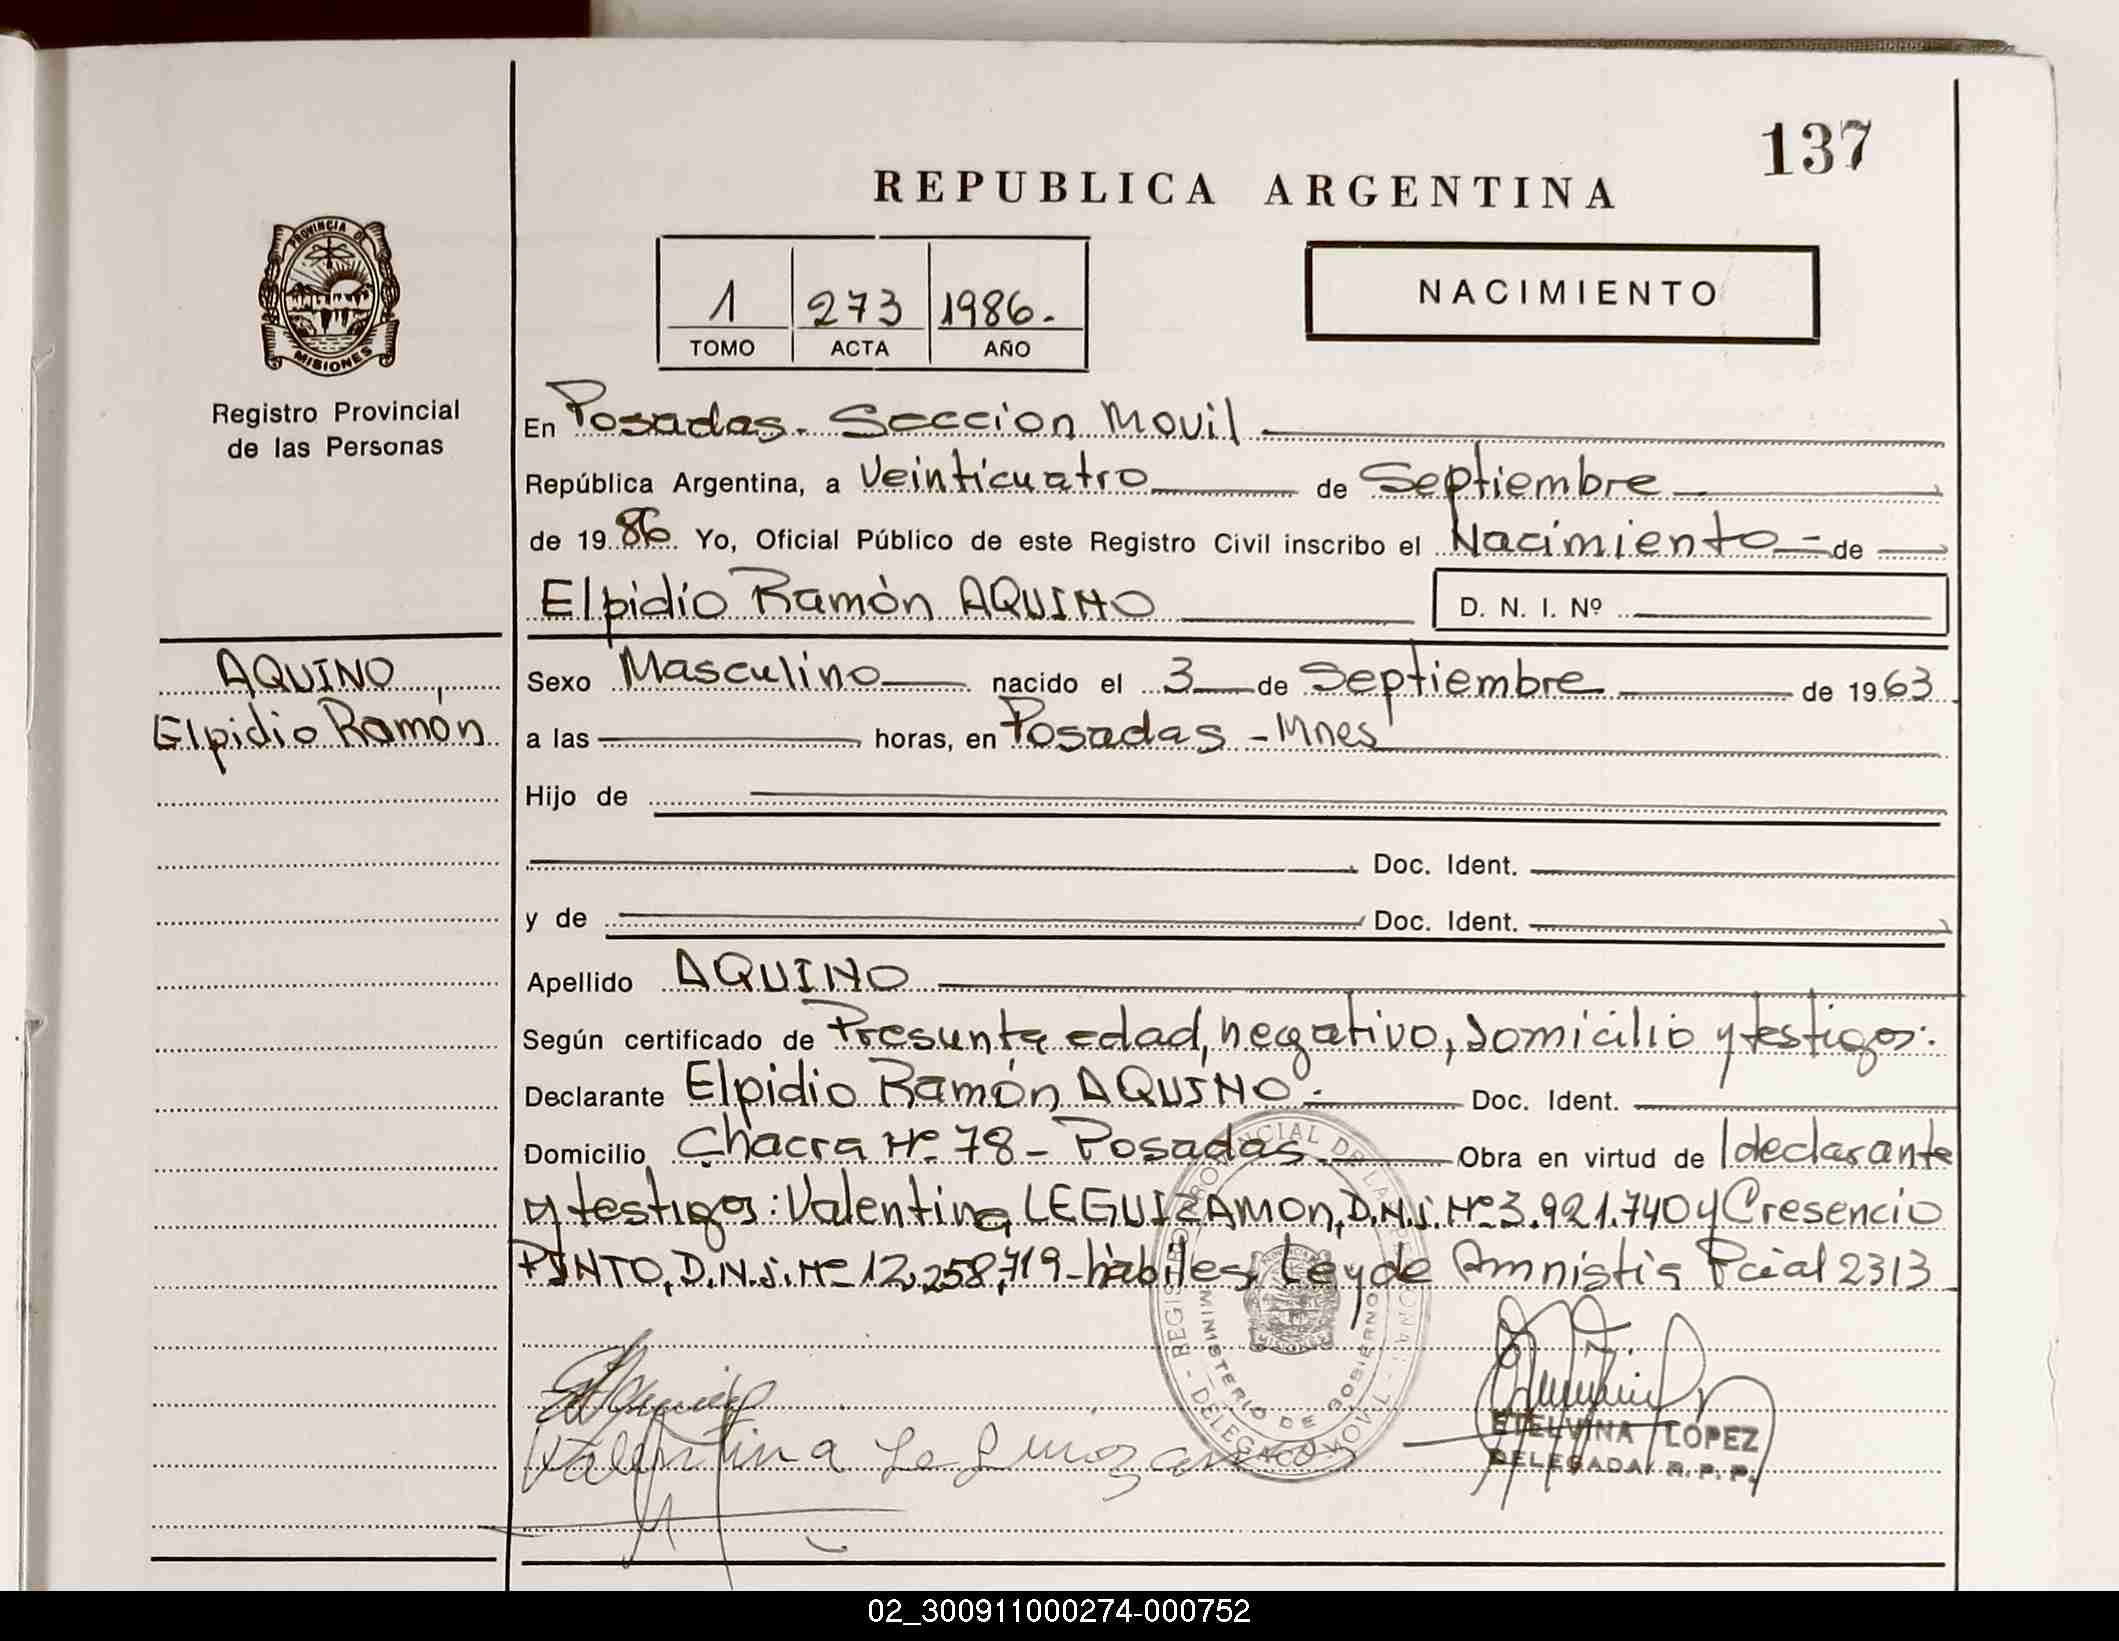 137
REPUBLICA ARGENTINA
PROVINCIA DE
MISIONES
1 273 1986.
TOMO ACTA AÑO
NACIMIENTO
Registro Provincial
de las Personas
En Posadas. Seccion Movil
República Argentina, a Veinticuatro de Septiembre
de 1986 Yo, Oficial Público de este Registro Civil inscribo el Nacimiento de
Elpidio Ramón AQUINO D. N. I. Nº
AQUINO,
Elpidio Ramón
Sexo Masculino nacido el 3 de Septiembre de 1963
a las horas, en Posadas - Mnes
Hijo de
Doc. Ident.
y de Doc. Ident.
Apellido AQUINO
Según certificado de Presunta edad, negativo, domicilio y testigos:
Declarante Elpidio Ramón AQUINO.- Doc. Ident.
Domicilio Chacra Nº 78 - Posadas. Obra en virtud de declarante
y testigos: Valentina LEGUIZAMON, D.N.I. Nº 3.921.740 y Cresencio
PINTO, D.N.I. Nº 12.258.719 - hábiles, Ley de Amnistia Pcial 2313
REGISTRO PROVINCIAL DE LAS PERSONAS - DELEGACION MOVIL -
MINISTERIO DE GOBIERNO
Valentina Leguizamon
ETELVINA LOPEZ
DELEGADA R. P. P.
02_300911000274-000752